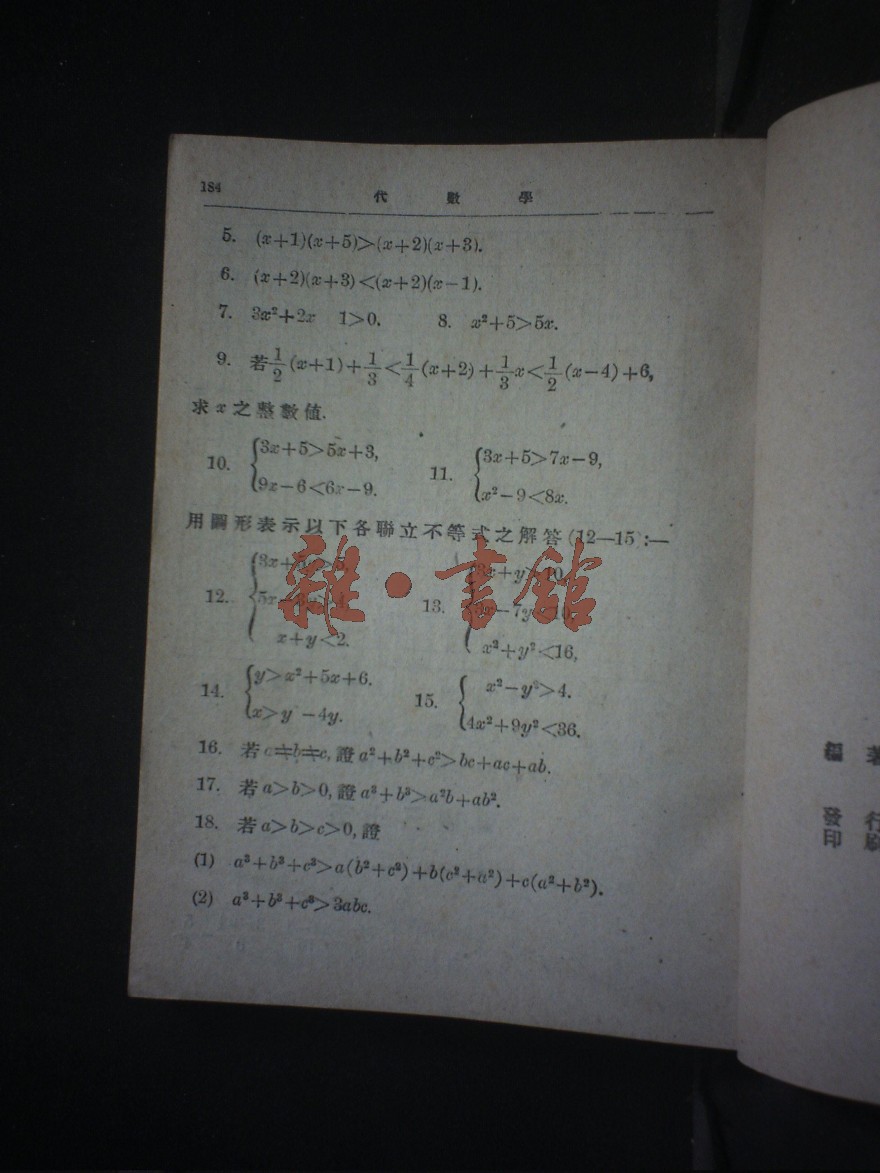 184
代數學
5. (x+1)(x+5)>(x+2)(x+3).
6. (x+2)(x+3)<(x+2)(x-1).
7. 3x²+2x 1>0. 8. x²+5>5x.
9. 若 1/2 (x+1)+ 1/3 < 1/4 (x+2)+ 1/3 x< 1/2 (x-4)+6,
求x之整數值.
10. {3x+5>5x+3, 11. {3x+5>7x-9,
9x-6<6x-9. x²-9<8x.
用圖形表示以下各聯立不等式之解答(12—15):—
雜·書館
12. 13.
x+y<2. x²+y²<16,
14. {y>x²+5x+6. 15. { x²-y²>4.
x>y -4y. 4x²+9y²<36.
16. 若 a≠b≠c, 證 a²+b²+c²>bc+ac+ab.
17. 若 a>b>0, 證 a³+b³>a²b+ab².
18. 若 a>b>c>0, 證
(1) a³+b³+c³>a(b²+c²)+b(c²+a²)+c(a²+b²).
(2) a³+b³+c³>3abc.
編
發行
印刷